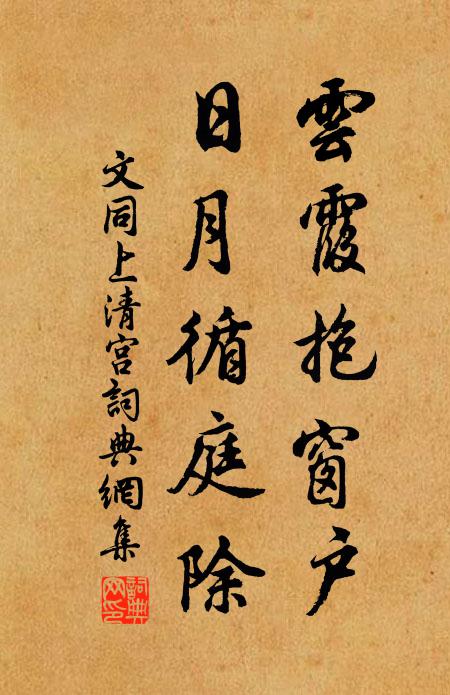 雲霞抱窗户
日月循庭除
文同上清宮詞典網集
詞典網印